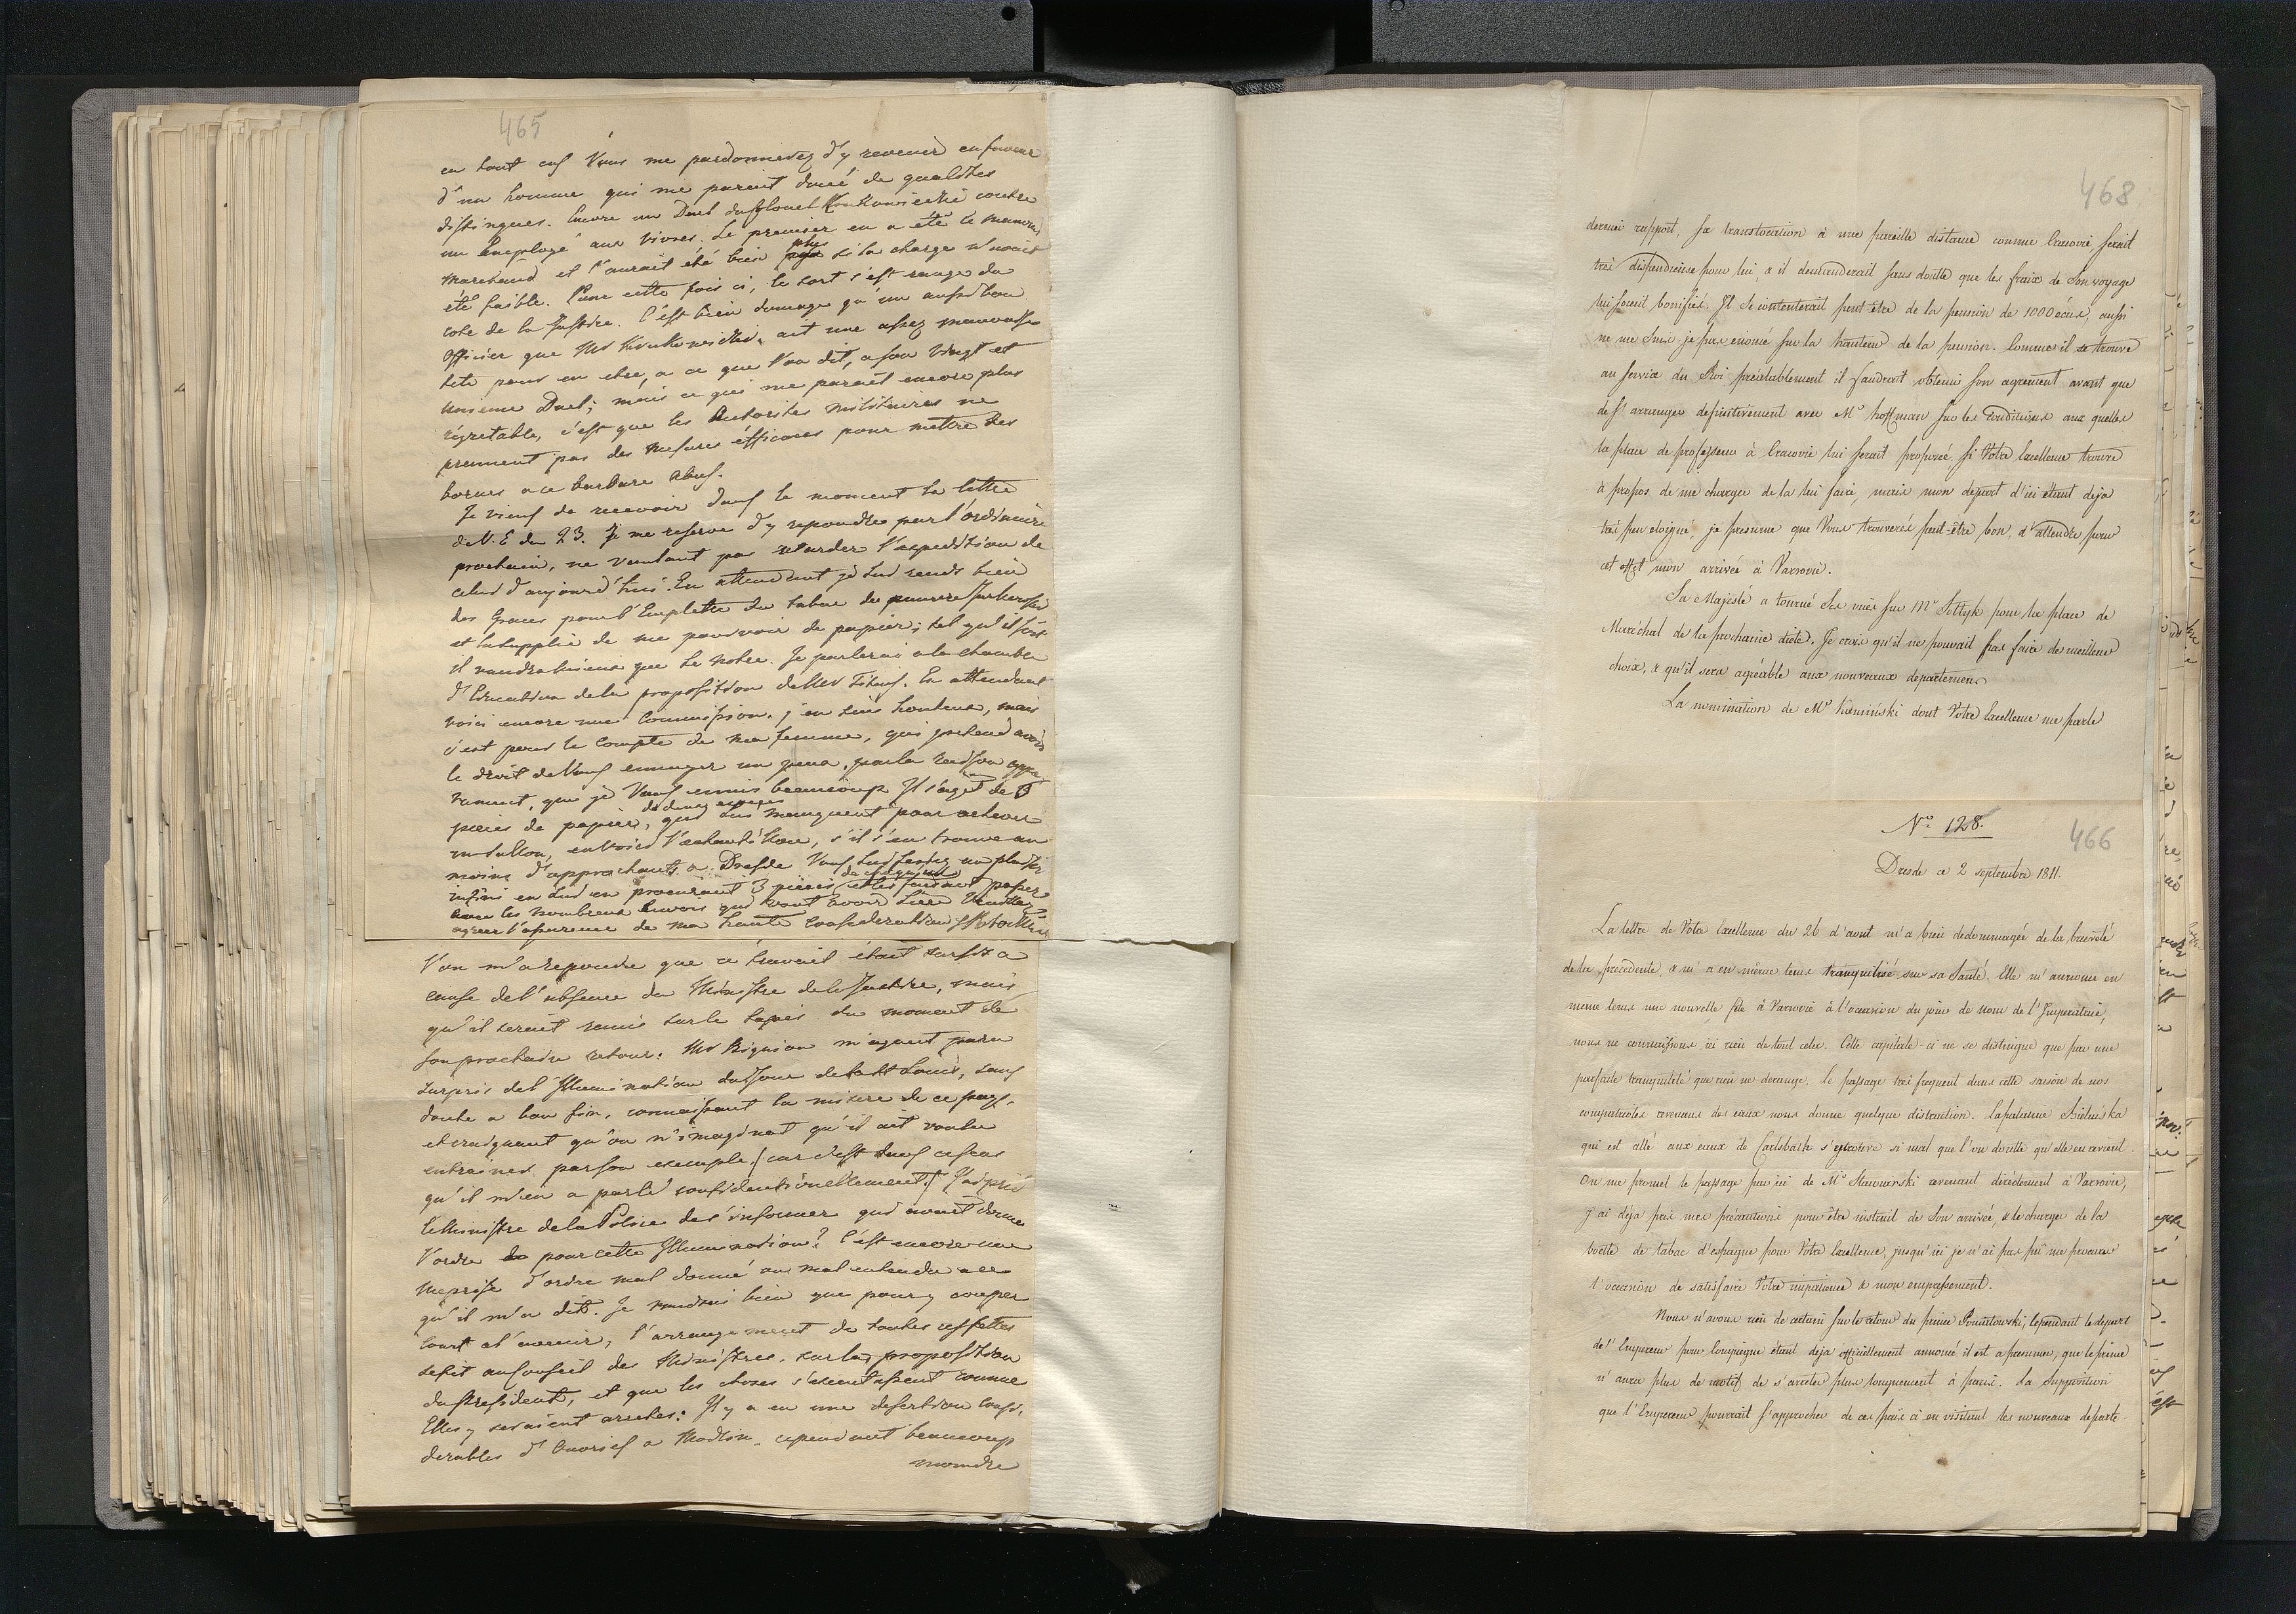 465
en tout cas Vous me pardonnerez d'y revenir en faveur
d'un homme qui me parait doué de qualités
distingués. Encore un Duel du Colonel Kwikowiecki contre
un Employé aux vivres. Le premier en a été le
marchand et l'aurait été bien plus si la charge n'avait
été faible. Pour cette fois ci, le sort s'est rangé du
coté de la Justice. C'est bien domage qu'un aussi bon
officier que Mr ait une assez mauvaise
tete pour en etre, a ce que l'on dit, a son vingt et
unieme Duel; mais ce qui me parait encore plus
régretable, c'est que les Autorités militaires ne
prennent pas des mesures éfficaces pour mettre des
bornes a ce barbare abus.
Je viens de recevoir dans le moment la lettre
de V. E du 23. Je me reserve d'y repondre par l'ordinaire
prochain, ne voulant pas retarder l'expedition de
celui d'aujourd'hui. En attendant je Lui rends bien
des Graces pour l'Emplette du tabac de
et la supplie de me pourvoir de papier; tel qu'il soit
il vaudra mieux que le notre. Je parlerai a la chambre
d'Education de la proposition de Mr. En attendant
voici encore une Commission. j'en suis honteux, mais
c'est pour le Compte de ma femme, qui pretend avoir
le droit de Vous ennuyer un peu, par la raison
que je Vous ennuie beaucoup. Il s'agit de 3
de deux
pieces de papier, qui Lui manquent pour achever
un Sallon, s'il s'en trouve au
moins d'approchants a Dresde Vous Lui feriez un plaisir
infini en Lui en procurant 3 pieces et les faisant passer
avec les nombreux Envois qui vont avoir lieu Veuillez
agréer l'assurance de ma haute consideration
L'on m'a repondu que ce travail était sursis a
cause de l'absence du Ministre de la Justice, mais
qu'il serait remis sur le tapis du moment de
son prochain retour. Mr Bignon m'ayant paru
surpris de l'Illumination du Jour de la St Louis, sans
doute a bon fin, connaissant la misere de ce pays,
et craignant qu'on n'imaginat qu'il ait voulu
entrainer par son exemple, (car c'est dans ce sens
qu'il m'en a parlé confidentionellement.) J'ai prié
le Ministre de la Police de s'informer qui avait donné
l'ordre pour cette Illumination? C'est encore une
meprise d'ordre mal donné ou mal entendu a ce
qu'il m'a dit. Je voudrais bien que pour y couper
court a l'avenir, l'arrangement de toutes ces fettes
se fit au Conseil des Ministres, sur la proposition
du President, et que les choses s'executassent comme
Elles y seraient arretées. Il y a eu une desertion consi,
derables d'Ouvriers a Modlin, cependant beaucoup
moindre
468
dernier rapport, Sa translocation à une pareille distance comme Cracovie serait
très dispendieuse pour lui, & il demanderait sans doutte que les fraix de Son voyage
lui soient bonifiés. Il Se contenterait peut être de la pension de 1000 écus, aussi
ne me Suis je pas énoncé sur la hauteur de la pension. Comme il se trouve
au Service du Roi préalablement il faudrait obtenir Son agrément avant que
de s'arranger définitivement avec Mr hoffman sur les conditions aux quelles
la place de professeur à Cracovie lui serait proposée, si Votre Excellence trouve
à propos de me charger de la lui faire, mais mon départ d'ici étant deja
très peu eloigné je presume que Vous trouverés peut-être bon, d'attendre pour
cet effet mon arrivée à Varsovie.
Sa Majesté a tourné Ses vues sur Mr Soltyk pour la place de
Maréchal de la prochaine diète. Je crois qu'il ne pouvait pas faire de meilleur
choix, & qu'il sera agréable aux nouveaux departemens
La nomination de Mr Kaminski dont Votre Excellence me parle
No 128.
466
Dresde ce 2 septembre 1811.
La lettre de Votre Excellence du 26 d'aout m'a bien dedommagée de la brieveté
de la précedente, & m'a en même tems tranquilisé sur sa Santé. Elle m'annonce en
meme tems une nouvelle fête à Varsovie à l'occasion du jour de nom de l'Imperatrice,
nous ne connaissons ici rien de tout cela. Cette capitale-ci ne se distingue que par une
parfaite tranquilité que rien ne derange. Le passage très frequent dans cette saison de nos
compatriotes revenans des eaux nous donne quelque distraction. La palatine Bielinska
qui est allé aux eaux de Carlsbath s'y trouve si mal que l'on doutte qu'elle en revient.
On me promet le passage par ici de Mr Stawiarski revenant directement à Varsovie,
j'ai déja pris mes précautions pour être instruit de Son arrivée, & le charger de la
boette de tabac d'espagne pour Votre Excellence, jusqu'ici je n'ai pas pû me procurer
l'occasion de satisfaire Votre impatience & mon empressement.
Nous n'avons rien de certain sur le retour du prince Poniatowski, cependant le depart
de l'Empereur pour Compiegne étant deja officiellement annoncé il est a presumer, que le prince
n'aura plus de motif de s'arreter plus longuement à paris. La Supposition
que l'Empereur pourrait s'approcher de ces païs ci en visitant les nouveaux departe